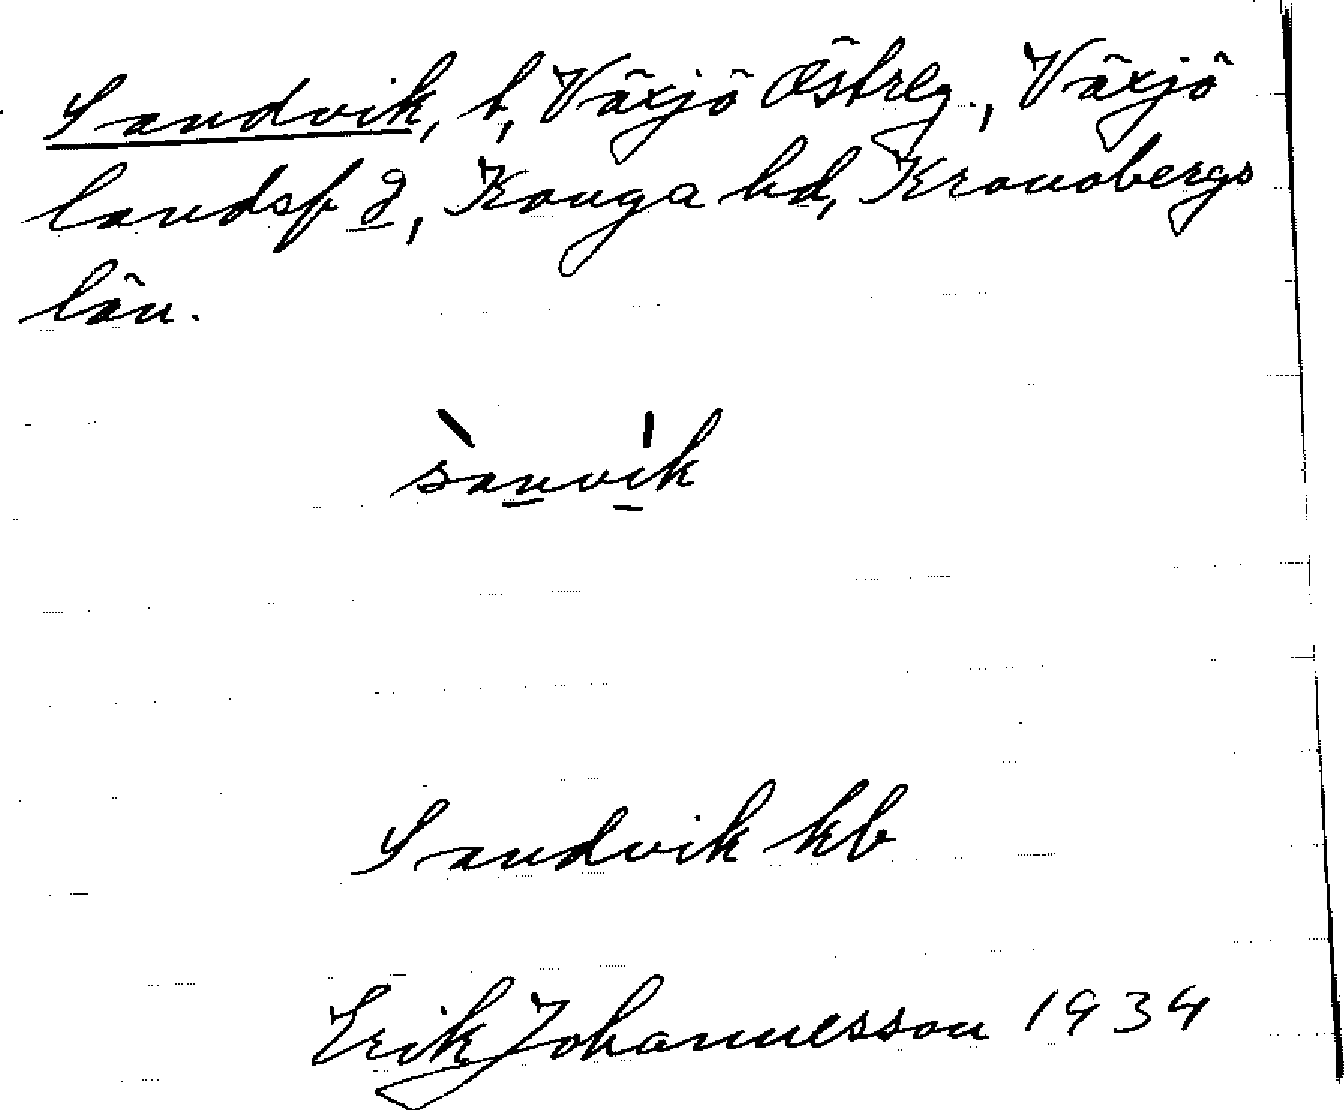 Sandvik, t, Växjö Östreg., Växjö
landsf d, Konga hd, Kronobergs
län.
sànvík
Sandvik kb
Erik Johannesson 1934